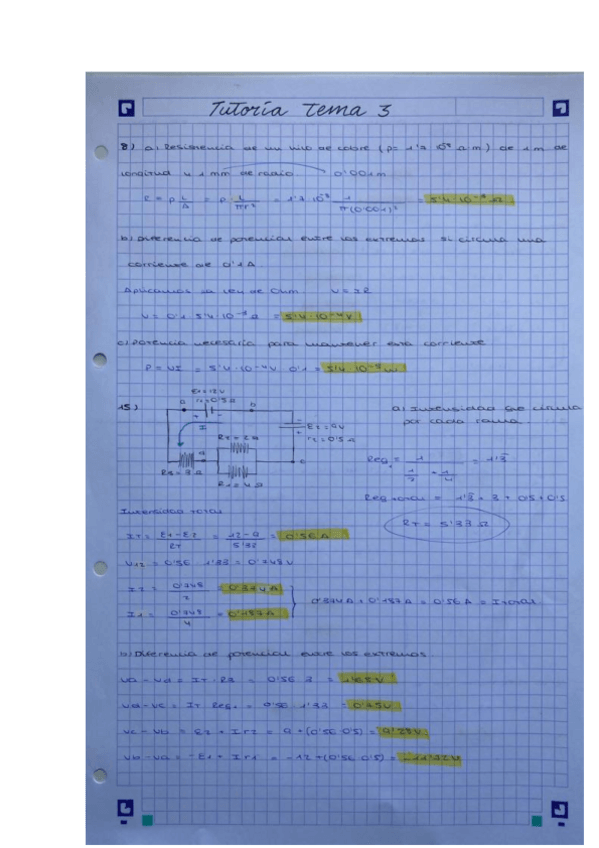 Tutoría Tema 3
8) a) Resistencia de un hilo de cobre (ρ = 1'7 10⁻⁸ Ω m) de 1 m de
longitud y 1 mm de radio. 0'001m
R = ρ L/A = ρ L/πr² = 1'7 10⁻⁸ 1/π(0'001)² = 5'4 · 10⁻³ Ω
b) Diferencia de potencial entre los extremos si circula una
corriente de 0'1A
Aplicamos la ley de Ohm V = IR
V = 0'1 5'4 10⁻³ Ω = 5'4 · 10⁻⁴ V
c) Potencia necesaria para mantener esta corriente
P = VI = 5'4 · 10⁻⁴ V 0'1 = 5'4 10⁻⁵ W
15)
E1 = 12V
r1 = 0'5 Ω
a
b
I
E2 = 9V
r2 = 0'5 Ω
R2 = 2 Ω
d
c
R3 = 3 Ω
R1 = 4 Ω
a) Intensidad que circula
por cada rama.
Req1 = 1 / (1/2 + 1/4) = 1'3
Req total = 1'3 + 3 + 0'5 + 0'5
RT = 5'33 Ω
Intensidad total
IT = E1 - E2 / RT = 12 - 9 / 5'33 = 0'56 A
V12 = 0'56 1'33 = 0'748 V
I2 = 0'748 / 2 = 0'374 A
I1 = 0'748 / 4 = 0'187 A
0'374 A + 0'187 A = 0'56 A = I total
b) Diferencia de potencial entre los extremos
Va - Vd = IT · R3 = 0'56 3 = 1'68 V
Vd - Vc = IT Req1 = 0'56 1'33 = 0'75 V
Vc - Vb = E2 + I r2 = 9 + (0'56 0'5) = 9'28 V
Vb - Va = -E1 + I r1 = -12 + (0'56 0'5) = -11'72 V